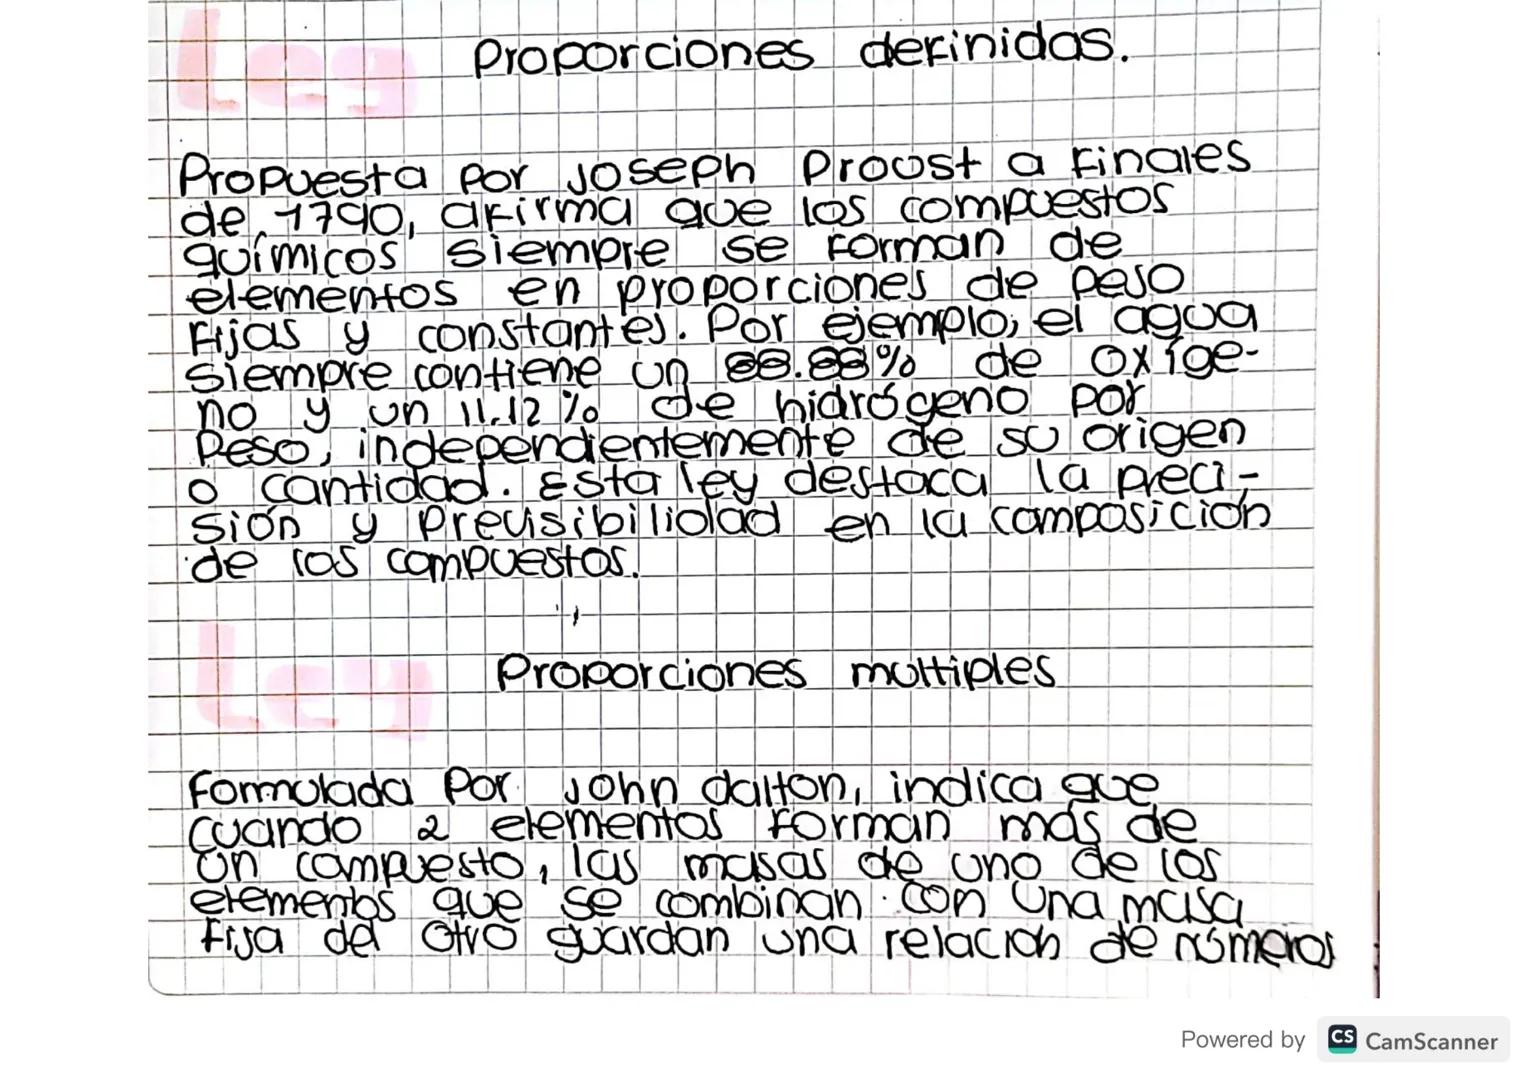 Ley Proporciones definidas.
Propuesta por Joseph Proust a finales
de 1790, afirma que los compuestos
químicos siempre se forman de
elementos en proporciones de peso
fijas y constantes. Por ejemplo, el agua
siempre contiene un 88.88% de oxíge-
no y un 11.12% de hidrógeno por
peso, independientemente de su origen
o cantidad. Esta ley destaca la preci-
sión y previsibilidad en la composición
de los compuestos.
Ley Proporciones multiples
Formulada por John dalton, indica que
cuando 2 elementos forman más de
un compuesto, las masas de uno de los
elementos que se combinan con una masa
fija del otro guardan una relación de números
Powered by CS CamScanner